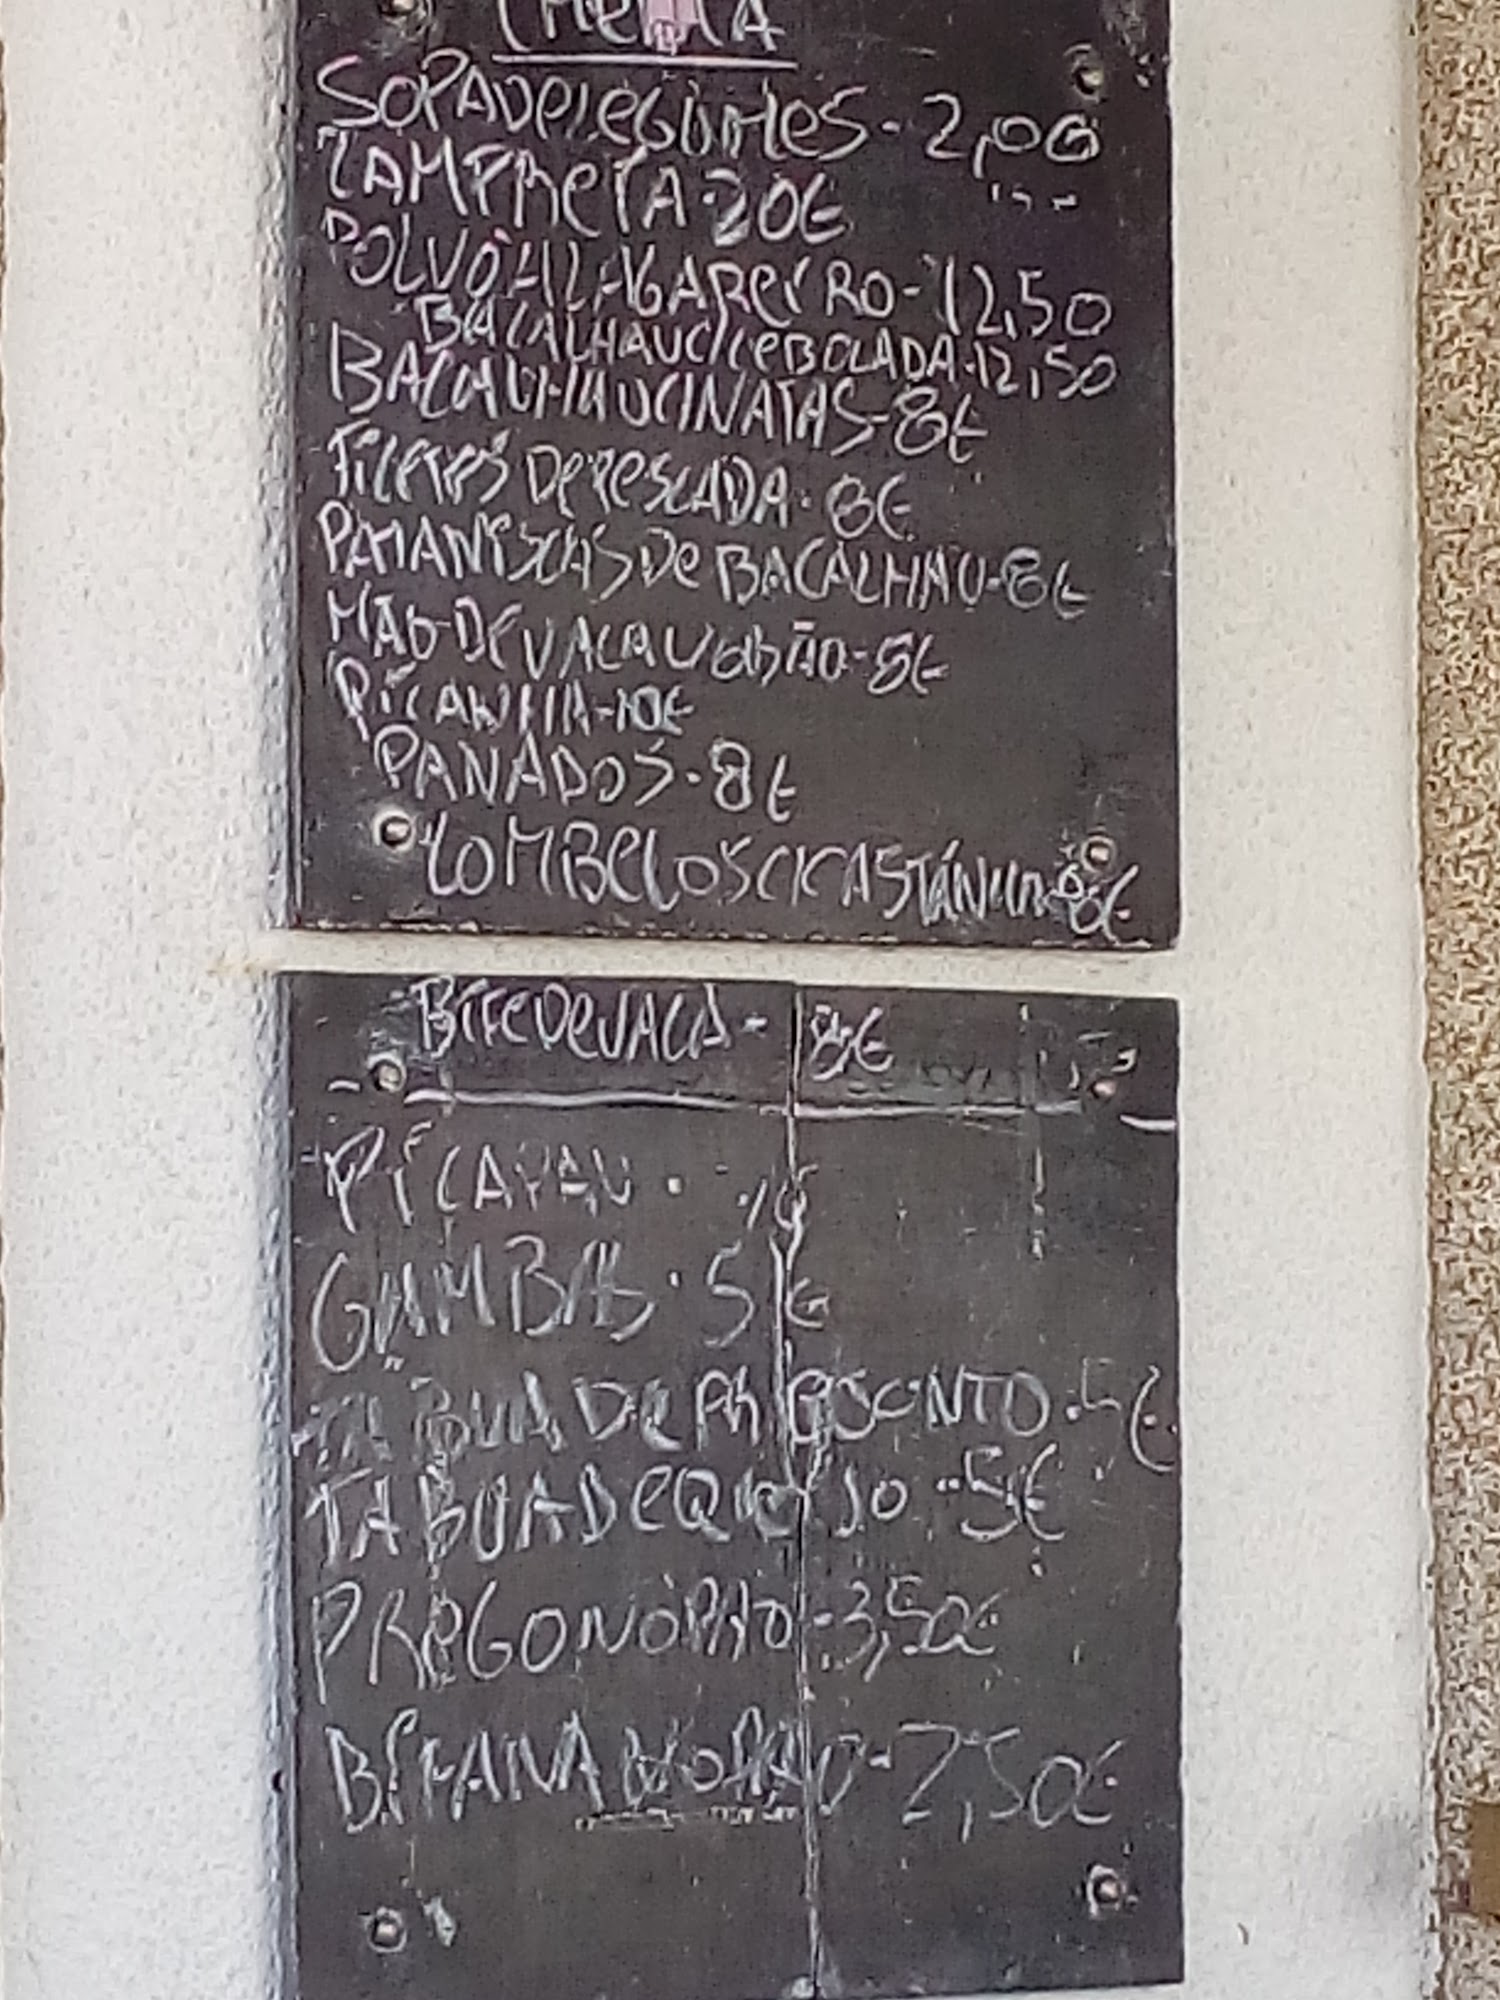 EMENTA
SOPA DE LEGUMES - 2,00
LAMPREIA - 20€
POLVO À LAGAREIRO - 12,50
BACALHAU C/ CEBOLADA - 12,50
BACALHAU C/ NATAS - 8€
FILETES DE PESCADA - 8€
PATANISCAS DE BACALHAU - 8€
MÃO DE VACA - 8€
PICANHA - 10€
PANADOS - 8€
LOMBELOS C/ CASTANHAS 8€
BIFE DE VACA - 8€
PICAPAU .
GAMBAS . 5€
TABUA DE PRESUNTO . 5€
TABUA DE QUEIJO . 5€
PREGO NO PÃO - 3,50€
BIFANA NO PÃO - 2,50€